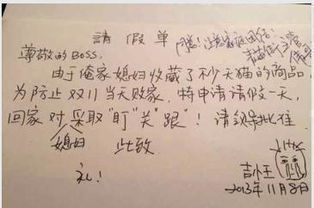 請假单
尊敬的BOSS，
由于俺家媳妇收藏了不少天猫的商品
为防止双11当天败家，特申请请假一天，
回家对媳妇采取"盯""关""跟"！请领导批准
此致
礼！
2013年11月8日